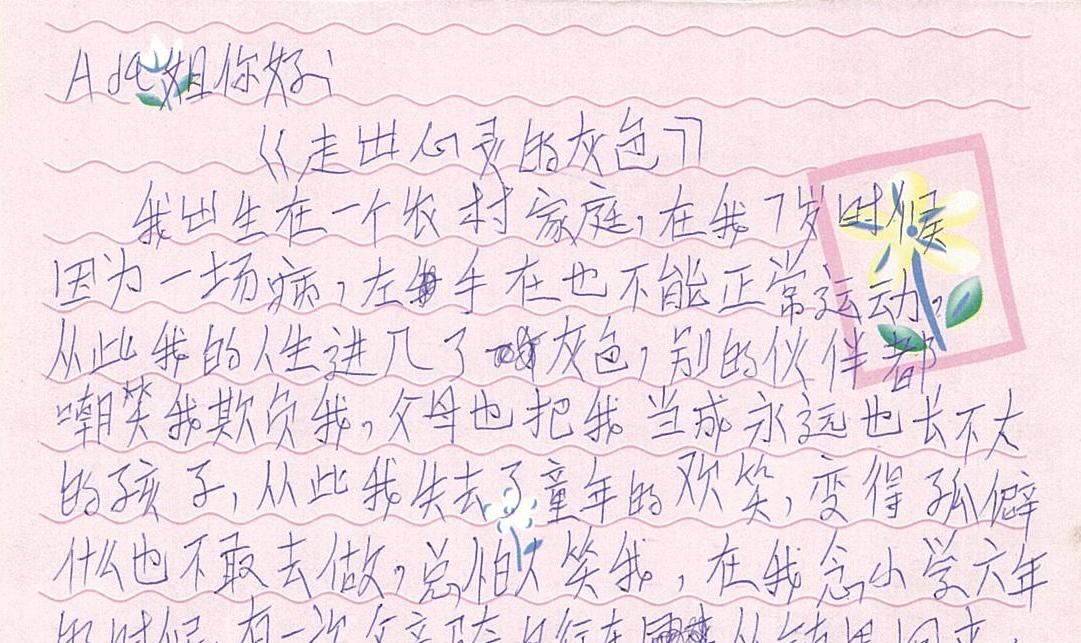 Ade姐你好;
《走出心灵的灰色》
我出生在一个农村家庭,在我7岁时候
因为一场病,左手在也不能正常运动,
从此我的人生进几了灰色,别的伙伴都
嘲笑我欺负我,父母也把我当成永远也长不大
的孩子,从此我失去了童年的欢笑,变得孤僻
什么也不敢去做,总怕人笑我,在我念小学六年
的时候,有一次